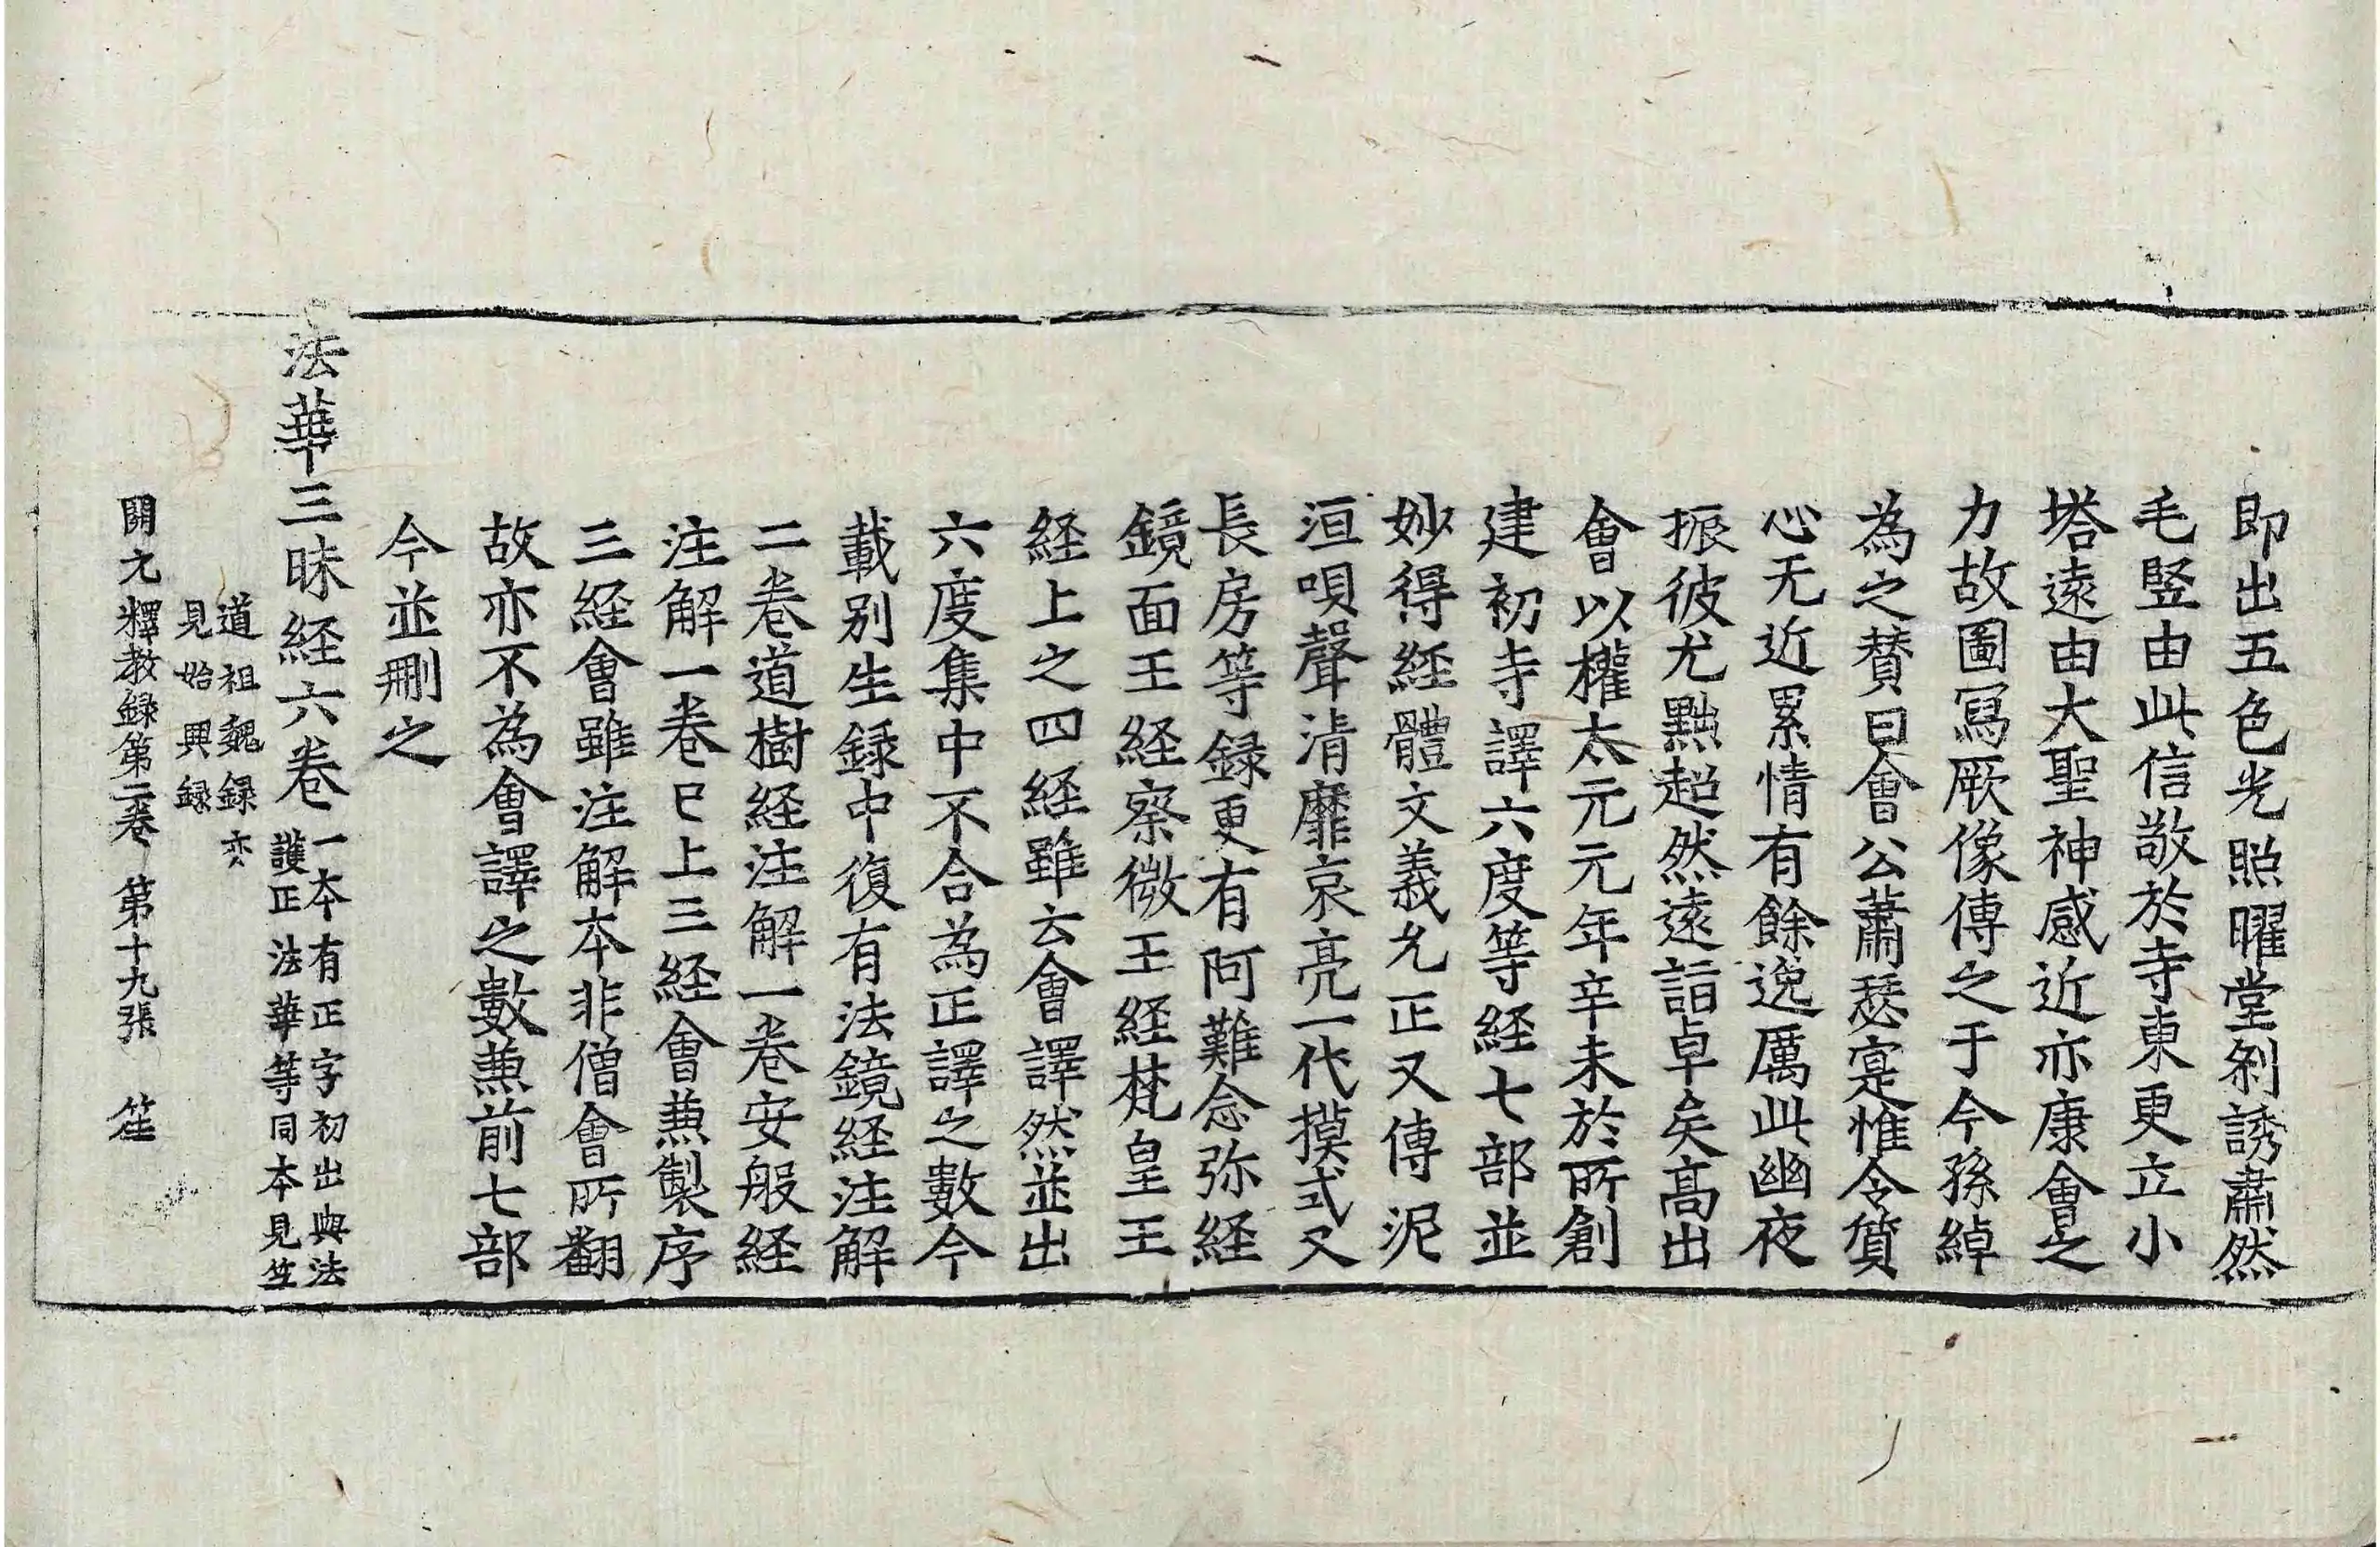 即出五色光照曜堂刹誘肅然
毛竪由此信敬於寺東更立小
塔遠由大聖神感近亦康會之
力故圖冩厥像傳之于今孫綽
為之賛曰會公蕭瑟寔惟令質
心无近累情有餘逸厲此幽夜
振彼尤黜超然遠詣卓矣高出
會以權太元元年辛未於所創
建初寺譯六度等経七部並
妙得経體文義允正又傳泥
洹唄聲清靡哀亮一代摸式又
長房等録更有阿難念弥経
鏡面王経察微王経梵皇王
経上之四経雖云會譯然並出
六度集中不合為正譯之數今
載別生録中復有法鏡経注解
二卷道樹経注解一卷安般経
注解一卷已上三経會兼製序
三経會雖注解本非僧會所翻
故亦不為會譯之數兼前七部
今並刪之
法華三昧経六卷
一本有正字初出與法
護正法華等同本見竺
道祖魏録亦
見始興録
開元釋教録第二卷　第十九張　笙